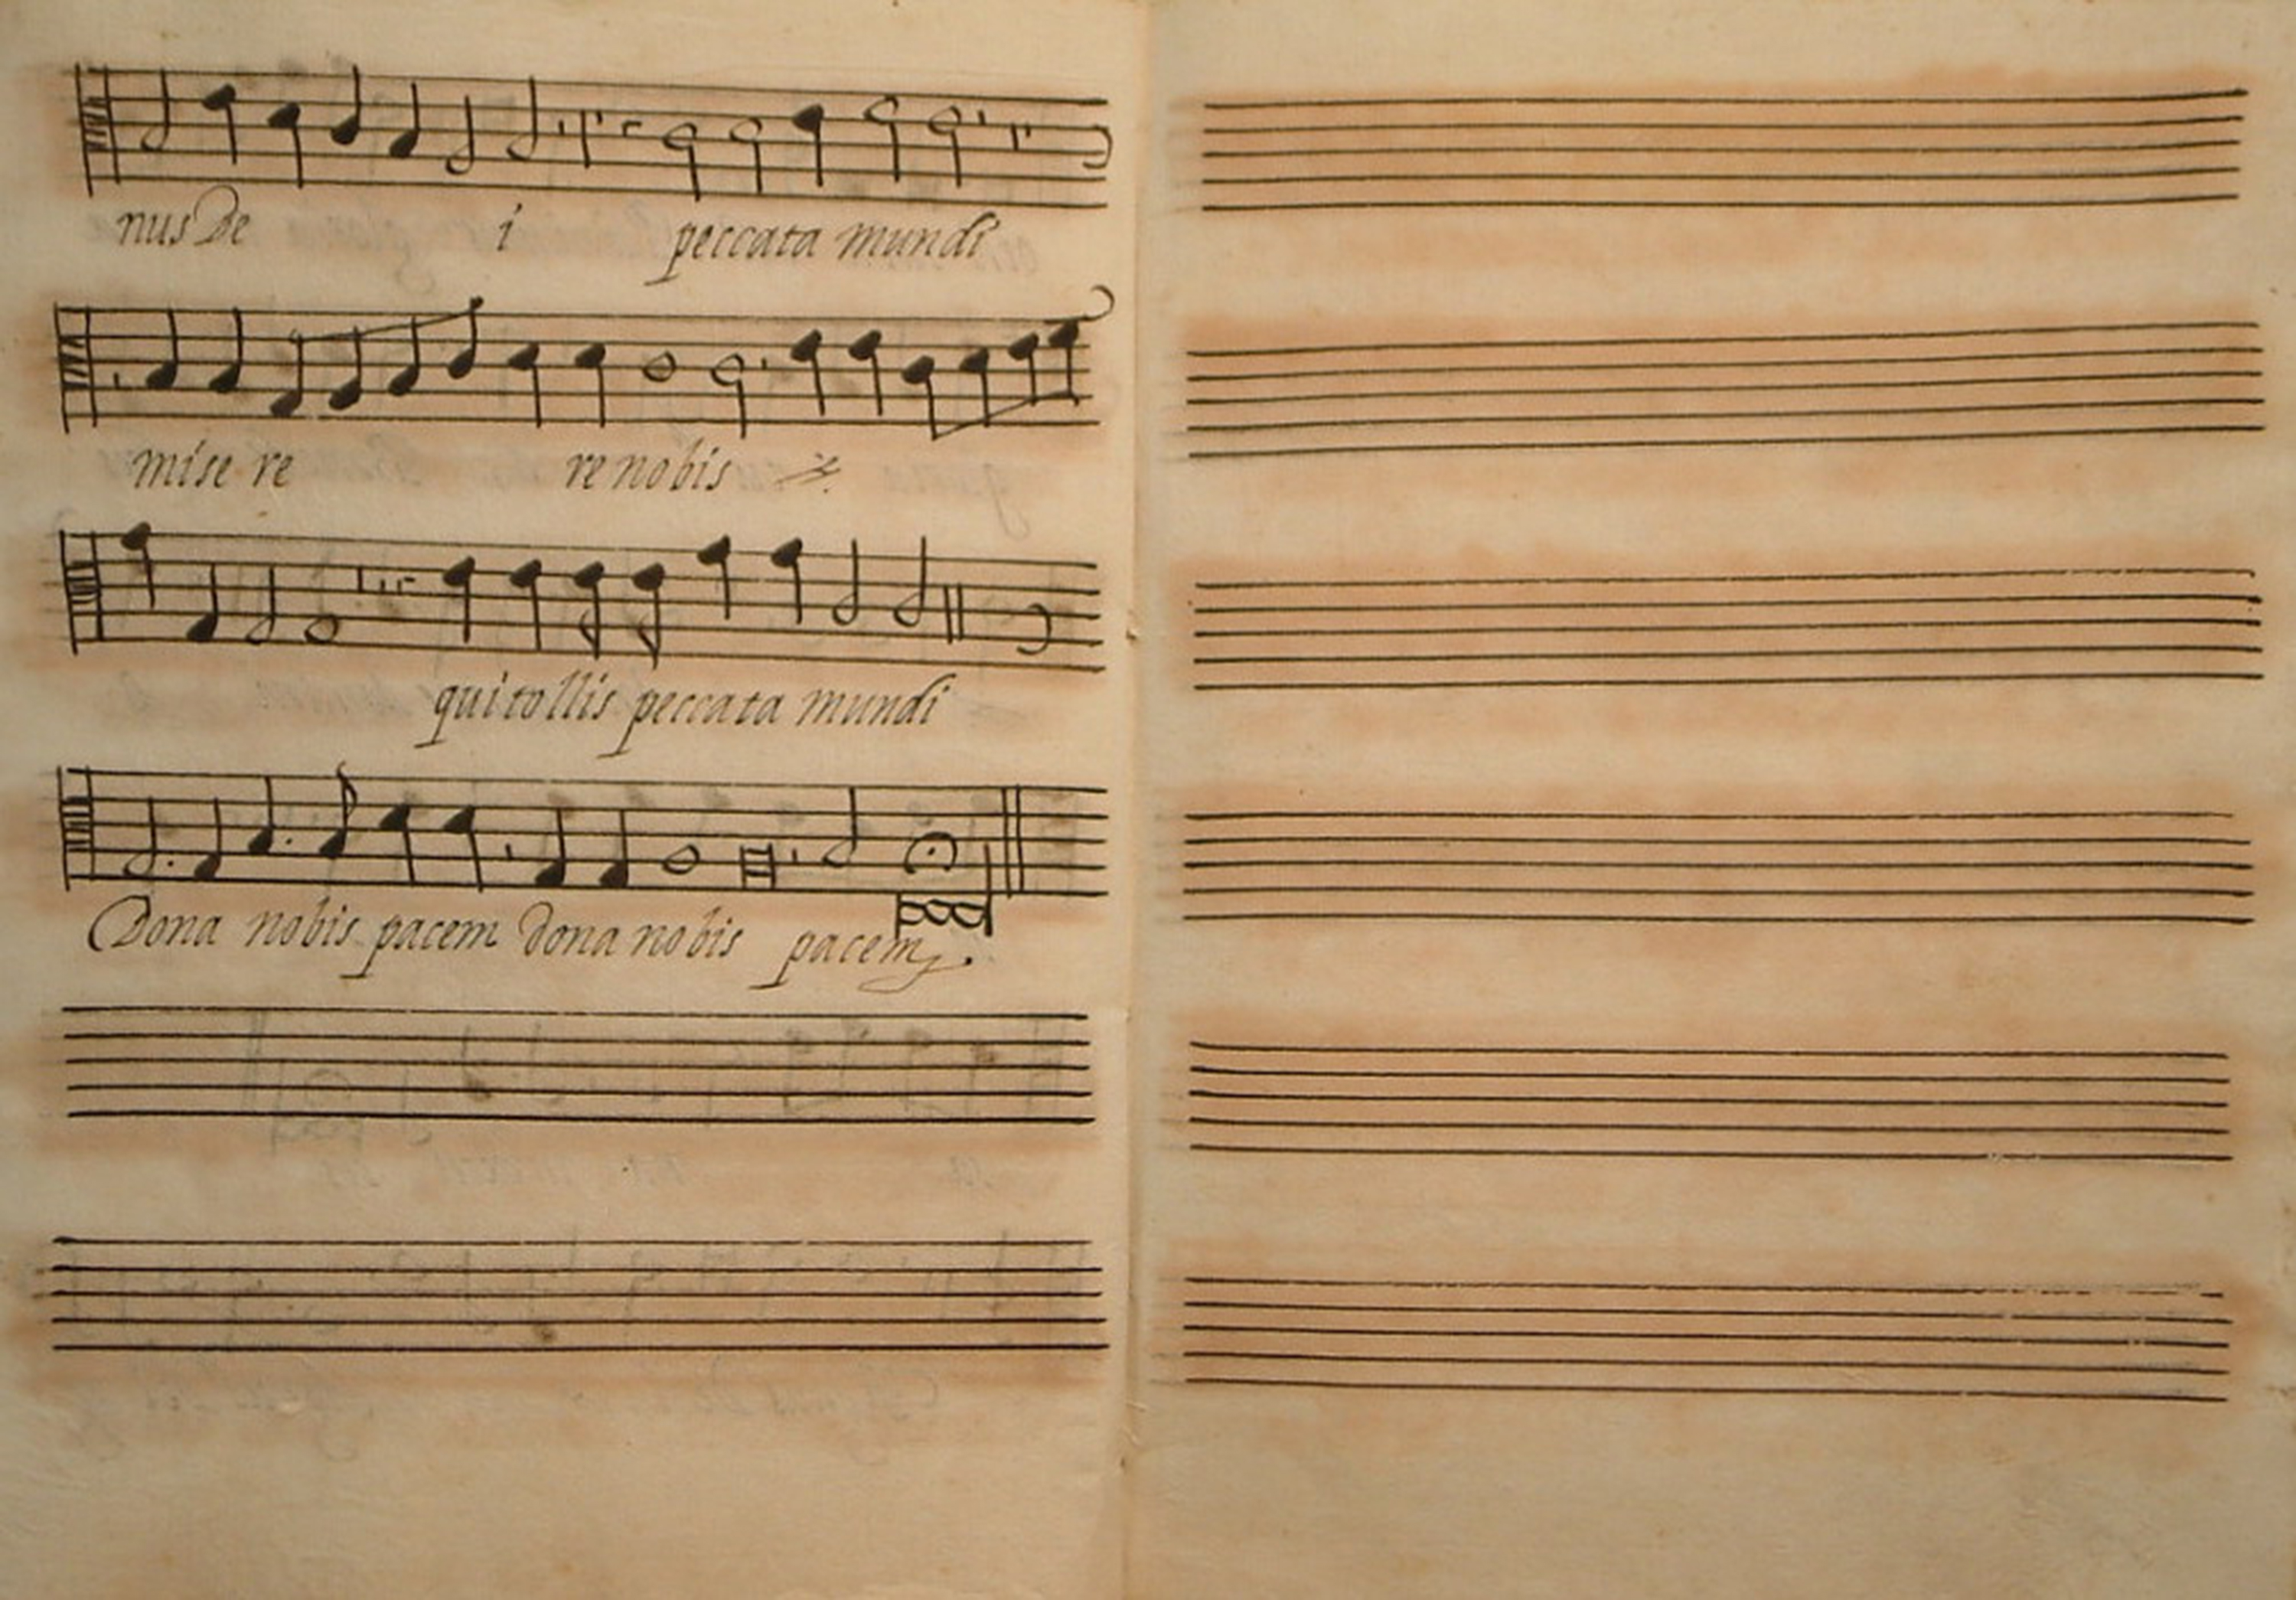 nus De i peccata mundi
mise re re nobis
qui tollis peccata mundi
Dona nobis pacem dona nobis pacem.